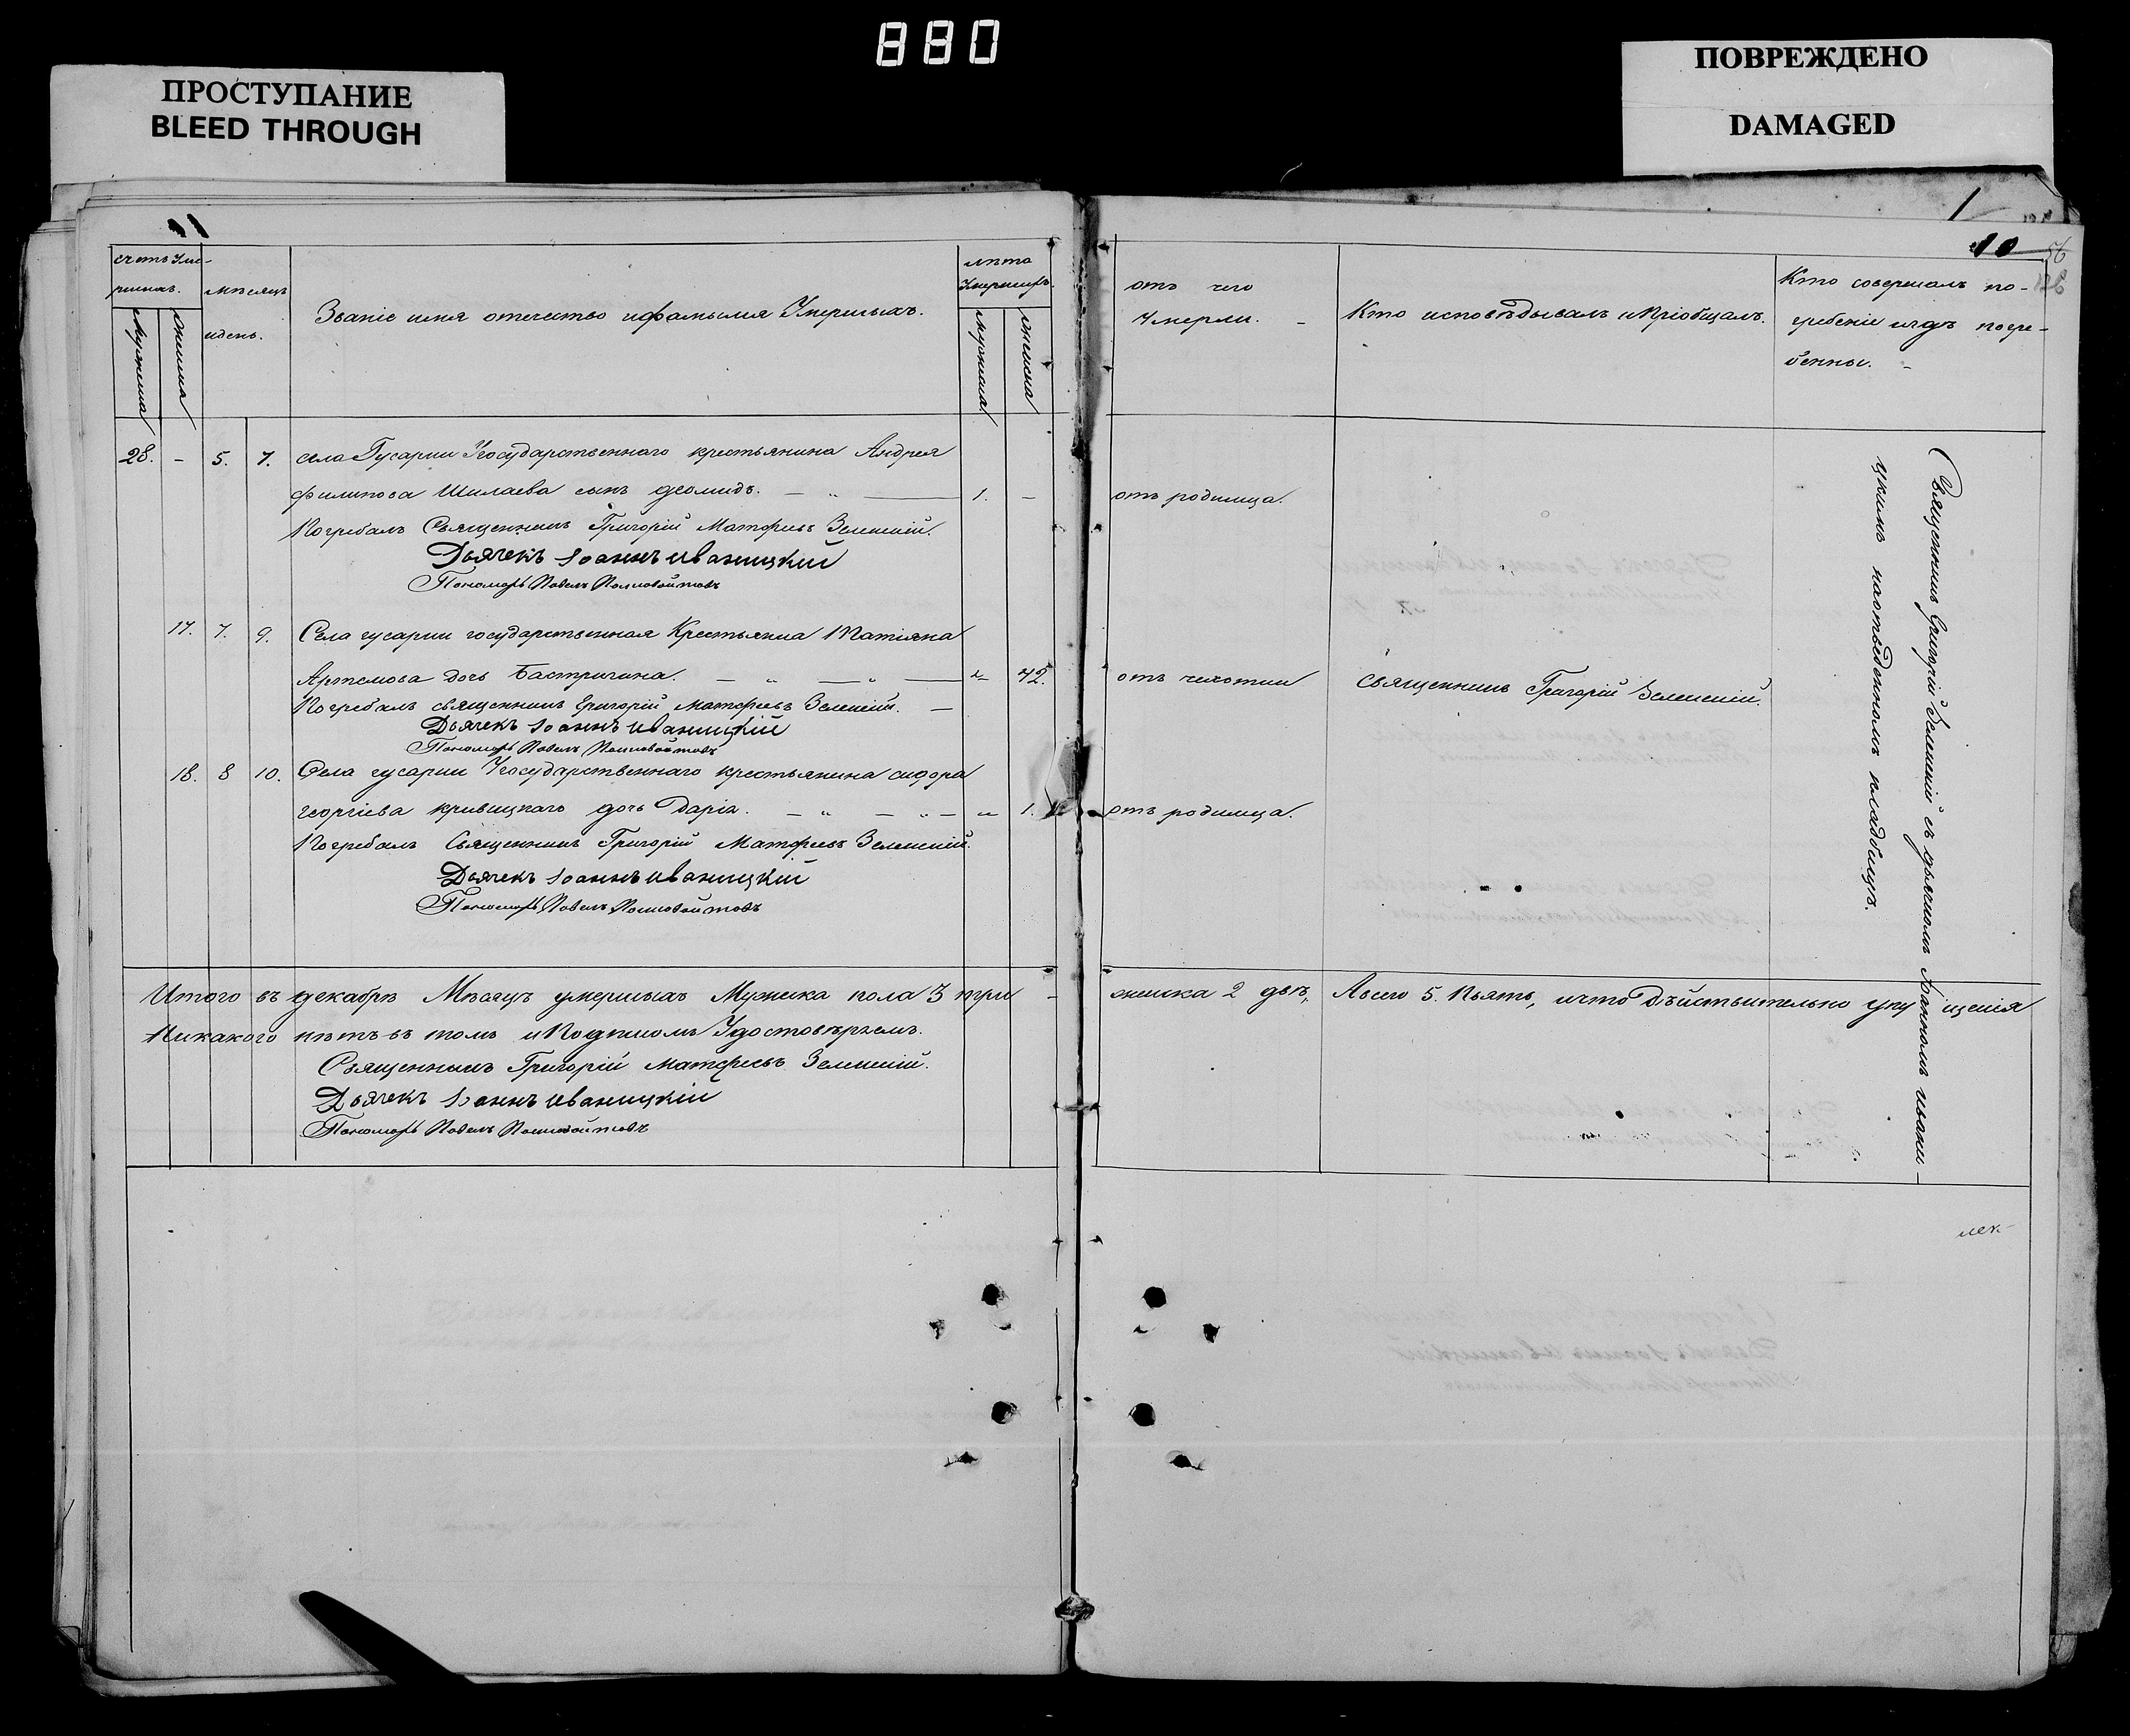 880
ПРОСТУПАНИЕ
BLEED THROUGH
ПОВРЕЖДЕНО
DAMAGED
11
1
10 56
счетъ уме-
ршихъ.
мужеска
женска
мѣсяцъ
и день.
Званіе имя отечество и фамылия Умершихъ.
лѣта
Умершихъ.
мужеска
женска
отъ чего
Умерли.
Кто исповѣдывалъ и Пріобщалъ.
Кто совершалъ по-
гребеніе и гдѣ погре-
бенны.
28. – 5. 7. села Гусарки Государственнаго крестьянина Андрея
филипова Шилаева сынъ диомидъ. 1. – отъ родимца.
Погребалъ Священникъ Григорій Матфеевъ Зеленскій.
Дьячекъ Іоаннъ Иваницкій
Пономарь Павелъ
17. 7. 9. Села гусарки государственная Крестьянка Татіяна
Артемова дочь Бастрыгина. 42. отъ чехотки Священникъ Григорій Зеленскій.
Погребалъ священникъ Григорій Матфеевъ Зеленскій.
Дьячекъ Іоаннъ Иваницкій
Пономарь Павелъ
18. 8 10. Села гусарки Государственнаго крестьянина сидора
георгіева кривицкаго дочь Дарія. 1. отъ родимца.
Погребалъ Священникъ Григорій Матфеевъ Зеленскій.
Дьячекъ Іоаннъ Иваницкій
Пономарь Павелъ
Священникъ Григорій Зеленскій съ дьячкомъ Іоанномъ Ивани-
цкимъ на отведенномъ кладбищѣ.
Итого въ декабрѣ Мѣсяцѣ умершихъ Мужеска пола 3 три – женска 2 двѣ, Авсего 5. Пьять, ичто Дѣйствительно упущения
Никакого нѣтъ въ томъ и Подписомъ Удостовѣряемъ.
Священникъ Григорій Матфеевъ Зеленскій.
Дьячекъ Іоаннъ Иваницкій
Пономарь Павелъ